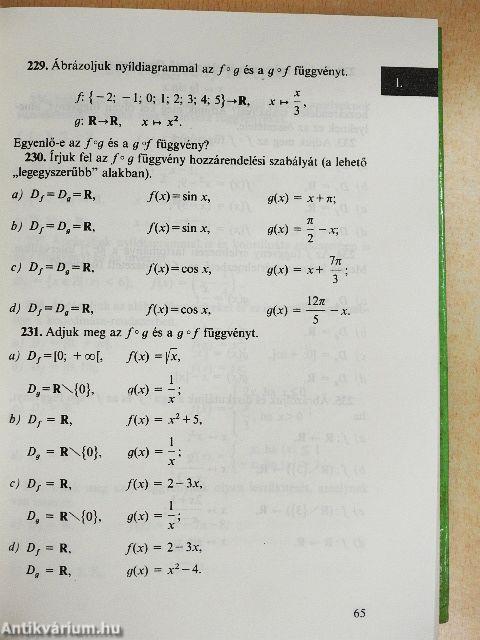 229. Ábrázoljuk nyíldiagrammal az f∘g és a g∘f függvényt.
I.
f: {−2; −1; 0; 1; 2; 3; 4; 5}→R, x ↦ x/3,
g: R→R, x ↦ x².
Egyenlő-e az f∘g és a g∘f függvény?
230. Írjuk fel az f∘g függvény hozzárendelési szabályát (a lehető
„legegyszerűbb” alakban).
a) D_f = D_g = R, f(x) = sin x, g(x) = x + π;
b) D_f = D_g = R, f(x) = sin x, g(x) = π/2 − x;
c) D_f = D_g = R, f(x) = cos x, g(x) = x + 7π/3;
d) D_f = D_g = R, f(x) = cos x, g(x) = 12π/5 − x.
231. Adjuk meg az f∘g és a g∘f függvényt.
a) D_f = [0; +∞[, f(x) = √x,
D_g = R∖{0}, g(x) = 1/x;
b) D_f = R, f(x) = x² + 5,
D_g = R∖{0}, g(x) = 1/x;
c) D_f = R, f(x) = 2 − 3x,
D_g = R∖{0}, g(x) = 1/x;
d) D_f = R, f(x) = 2 − 3x,
D_g = R, g(x) = x² − 4.
65
Antikvárium.hu